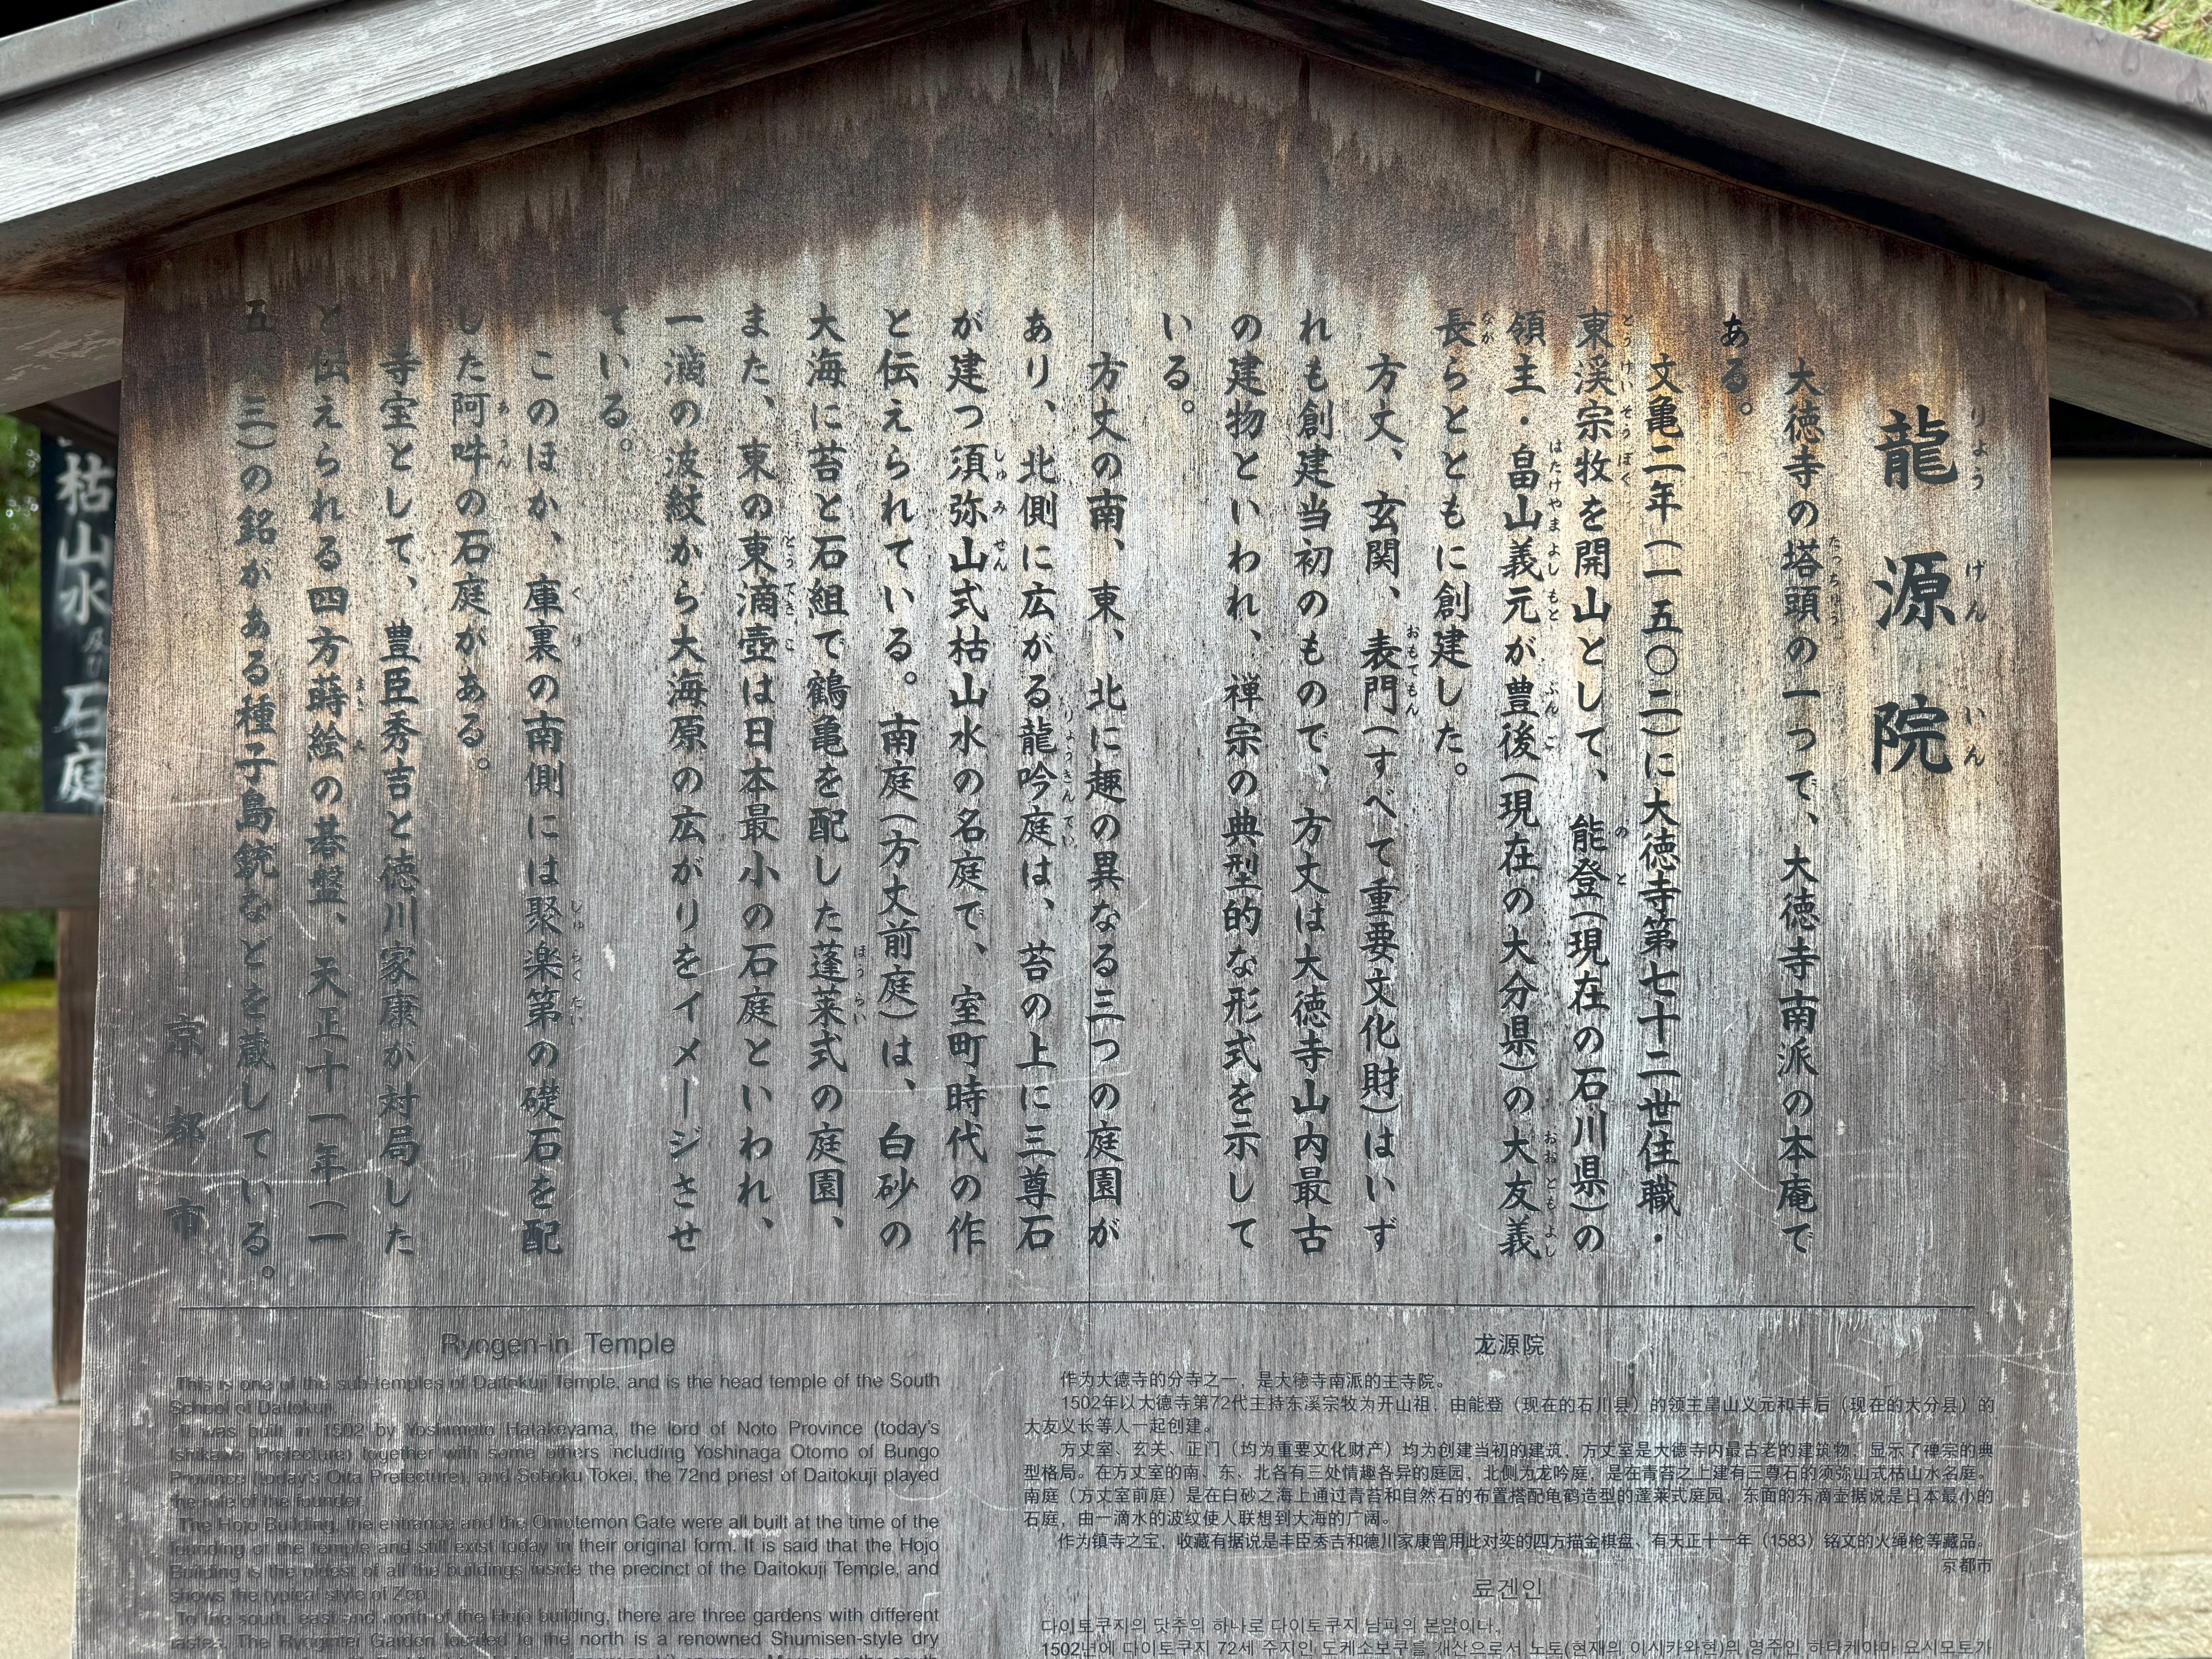 龍源院
りょうげんいん
大徳寺の塔頭の一つで、大徳寺南派の本庵で
たっちゅう
ある。
文亀二年(一五〇二)に大徳寺第七十二世住職・
東渓宗牧を開山として、能登(現在の石川県)の
とうけいそうぼく
のと
領主・畠山義元が豊後(現在の大分県)の大友義
はたけやまよしもと
ぶんご
おおともよし
長らとともに創建した。
なが
方丈、玄関、表門(すべて重要文化財)はいず
おもてもん
れも創建当初のもので、方丈は大徳寺山内最古
の建物といわれ、禅宗の典型的な形式を示して
いる。
方丈の南、東、北に趣の異なる三つの庭園が
あり、北側に広がる龍吟庭は、苔の上に三尊石
りょうぎんてい
が建つ須弥山式枯山水の名庭で、室町時代の作
しゅみせん
と伝えられている。南庭(方丈前庭)は、白砂の
大海に苔と石組で鶴亀を配した蓬莱式の庭園、
ほうらい
また、東の東滴壺は日本最小の石庭といわれ、
とうてきこ
一滴の波紋から大海原の広がりをイメージさせ
ている。
このほか、庫裏の南側には聚楽第の礎石を配
くり
じゅらくだい
した阿吽の石庭がある。
あうん
寺宝として、豊臣秀吉と徳川家康が対局した
と伝えられる四方蒔絵の碁盤、天正十一年(一
まきえ
五八三)の銘がある種子島銃などを蔵している。
京都市
枯山水及び石庭
Ryogen-in Temple
This is one of the sub-temples of Daitokuji Temple, and is the head temple of the South
School of Daitokuji.
It was built in 1502 by Yoshimoto Hatakeyama, the lord of Noto Province (today's
Ishikawa Prefecture) together with some others including Yoshinaga Otomo of Bungo
Province (today's Oita Prefecture), and Soboku Tokei, the 72nd priest of Daitokuji played
the role of the founder.
The Hojo Building, the entrance and the Omotemon Gate were all built at the time of the
founding of the temple and still exist today in their original form. It is said that the Hojo
Building is the oldest of all the buildings inside the precinct of the Daitokuji Temple, and
shows the typical style of Zen.
To the south, east and north of the Hojo building, there are three gardens with different
tastes. The Ryogintei Garden located to the north is a renowned Shumisen-style dry
龙源院
作为大德寺的分寺之一，是大德寺南派的主寺院。
1502年以大德寺第72代主持东溪宗牧为开山祖，由能登（现在的石川县）的领主畠山义元和丰后（现在的大分县）的
大友义长等人一起创建。
方丈室、玄关、正门（均为重要文化财产）均为创建当初的建筑，方丈室是大德寺内最古老的建筑物，显示了禅宗的典
型格局。在方丈室的南、东、北各有三处情趣各异的庭园，北侧为龙吟庭，是在青苔之上建有三尊石的须弥山式枯山水名庭。
南庭（方丈室前庭）是在白砂之海上通过青苔和自然石的布置搭配龟鹤造型的蓬莱式庭园，东面的东滴壶据说是日本最小的
石庭，由一滴水的波纹使人联想到大海的广阔。
作为镇寺之宝，收藏有据说是丰臣秀吉和德川家康曾用此对奕的四方描金棋盘、有天正十一年（1583）铭文的火绳枪等藏品。
京都市
료겐인
다이토쿠지의 탓추의 하나로 다이토쿠지 남파의 본암이다.
1502년에 다이토쿠지 72세 주지인 도케소보쿠를 개산으로서 노토(현재의 이시카와현)의 영주인 하타케야마 요시모토가